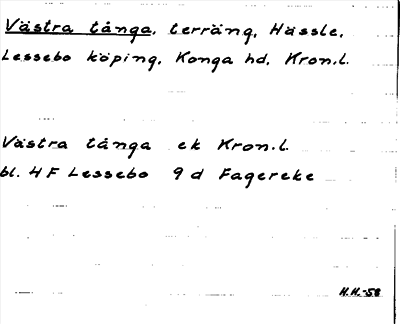 Västra tånga, terräng, Hässle,
Lessebo köping, Konga hd, Kron.l.
Västra tånga ek Kron.l.
bl. 4F Lessebo 9d Fagereke
H.H.-58